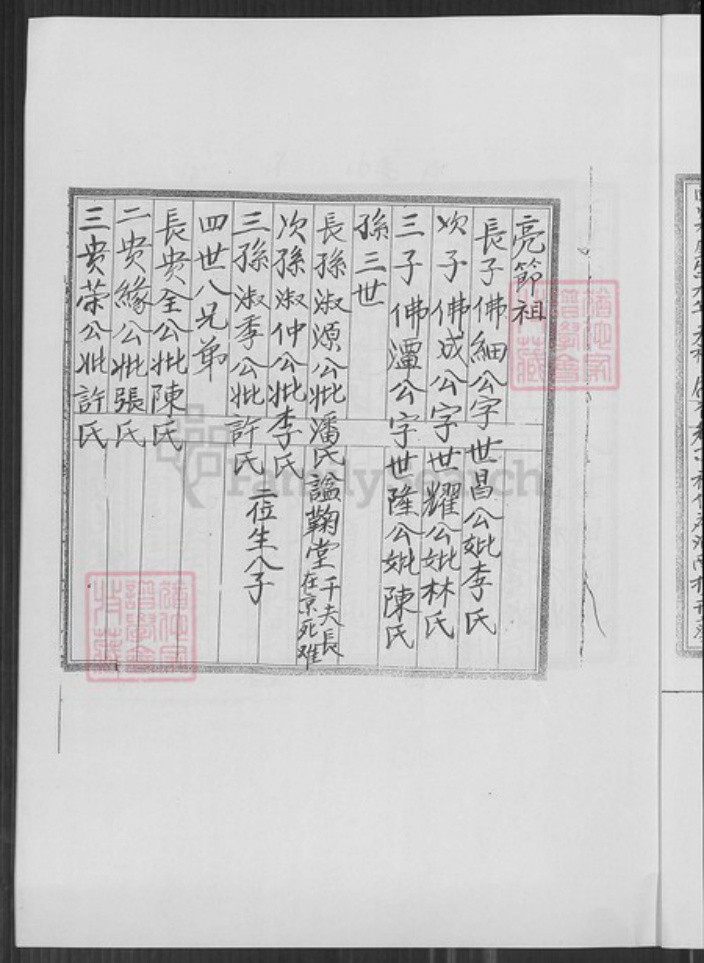 亮節祖
長子佛細公字世昌公妣李氏
次子佛成公字世耀公妣林氏
三子佛潭公字世隆公妣陳氏
孫三世
長孫淑源公妣潘氏謚鞠堂千夫長在京死难
次孫淑仲公妣李氏
三孫淑季公妣許氏二位生八子
四世八兄弟
長貴全公妣陳氏
二貴緣公妣張氏
三贵荣公妣許氏
FamilySearch